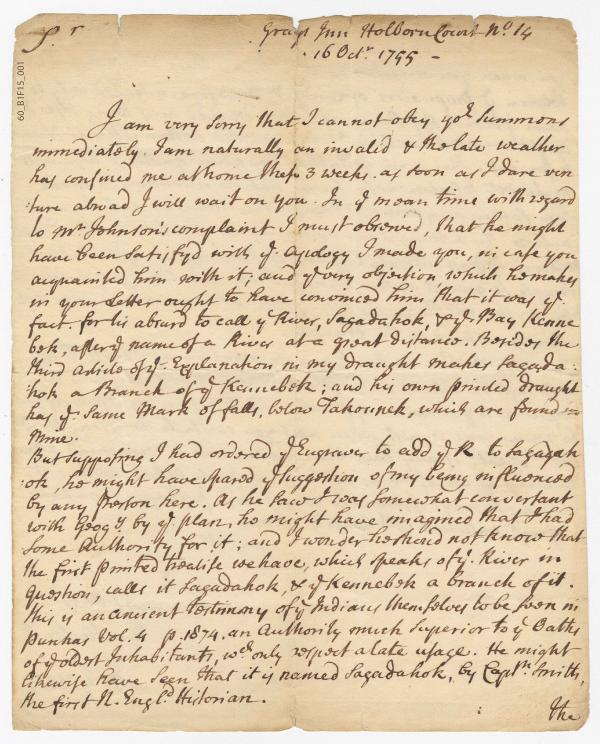 60_B1F15_001
Sr
Grays Inn Holborn Court No. 14
16 Octr. 1755 -
I am very sorry that I cannot obey yor. Summons
immediately. I am naturally an invalid & the late weather
has confined me at home these 3 weeks. as soon as I dare ven
ture abroad I will wait on you. In ye mean time with regard
to Mr. Johnson's complaint I must observed, that he might
have been satisfyd with ye. apology I made you, in case you
acquainted him with it; and ye very objection which he makes
in your Letter ought to have convinced him that it was ye.
fact. for tis absurd to call ye River, Sagadahok, & ye. Bay Kenne
bek, after ye name of a River at a great distance. Besides the
third article of ye. Explanation in my draught makes Sagada
hok a Branch of ye Kennebek; and his own printed draught
has ye. Same Mark of falls, below Takounek, which are found in
mine.
But supposing I had ordered ye Engraver to add ye R. to Sagadah
ok, he might have spared ye suggestion of my being influenced
by any person here. As he saw I was somewhat conversant
with Geogy. by ye. plan, he might have imagined that I had
some Authority for it; and I wonder he shoud not know that
the first printed treatise we have, which speaks of ye. River in
question, calls it Sagadahok, & ye Kennebek a branch of it.
This is an ancient testimony of ye Indians themselves to be seen in
Purchas Vol. 4 p. 1874. an Authority much superior to ye Oaths
of ye oldest Inhabitants, wch. only respect a late usage. He might
likewise have seen that it is named Sagadahok, by Captn. Smith,
the first N. Engld. Historian.
The